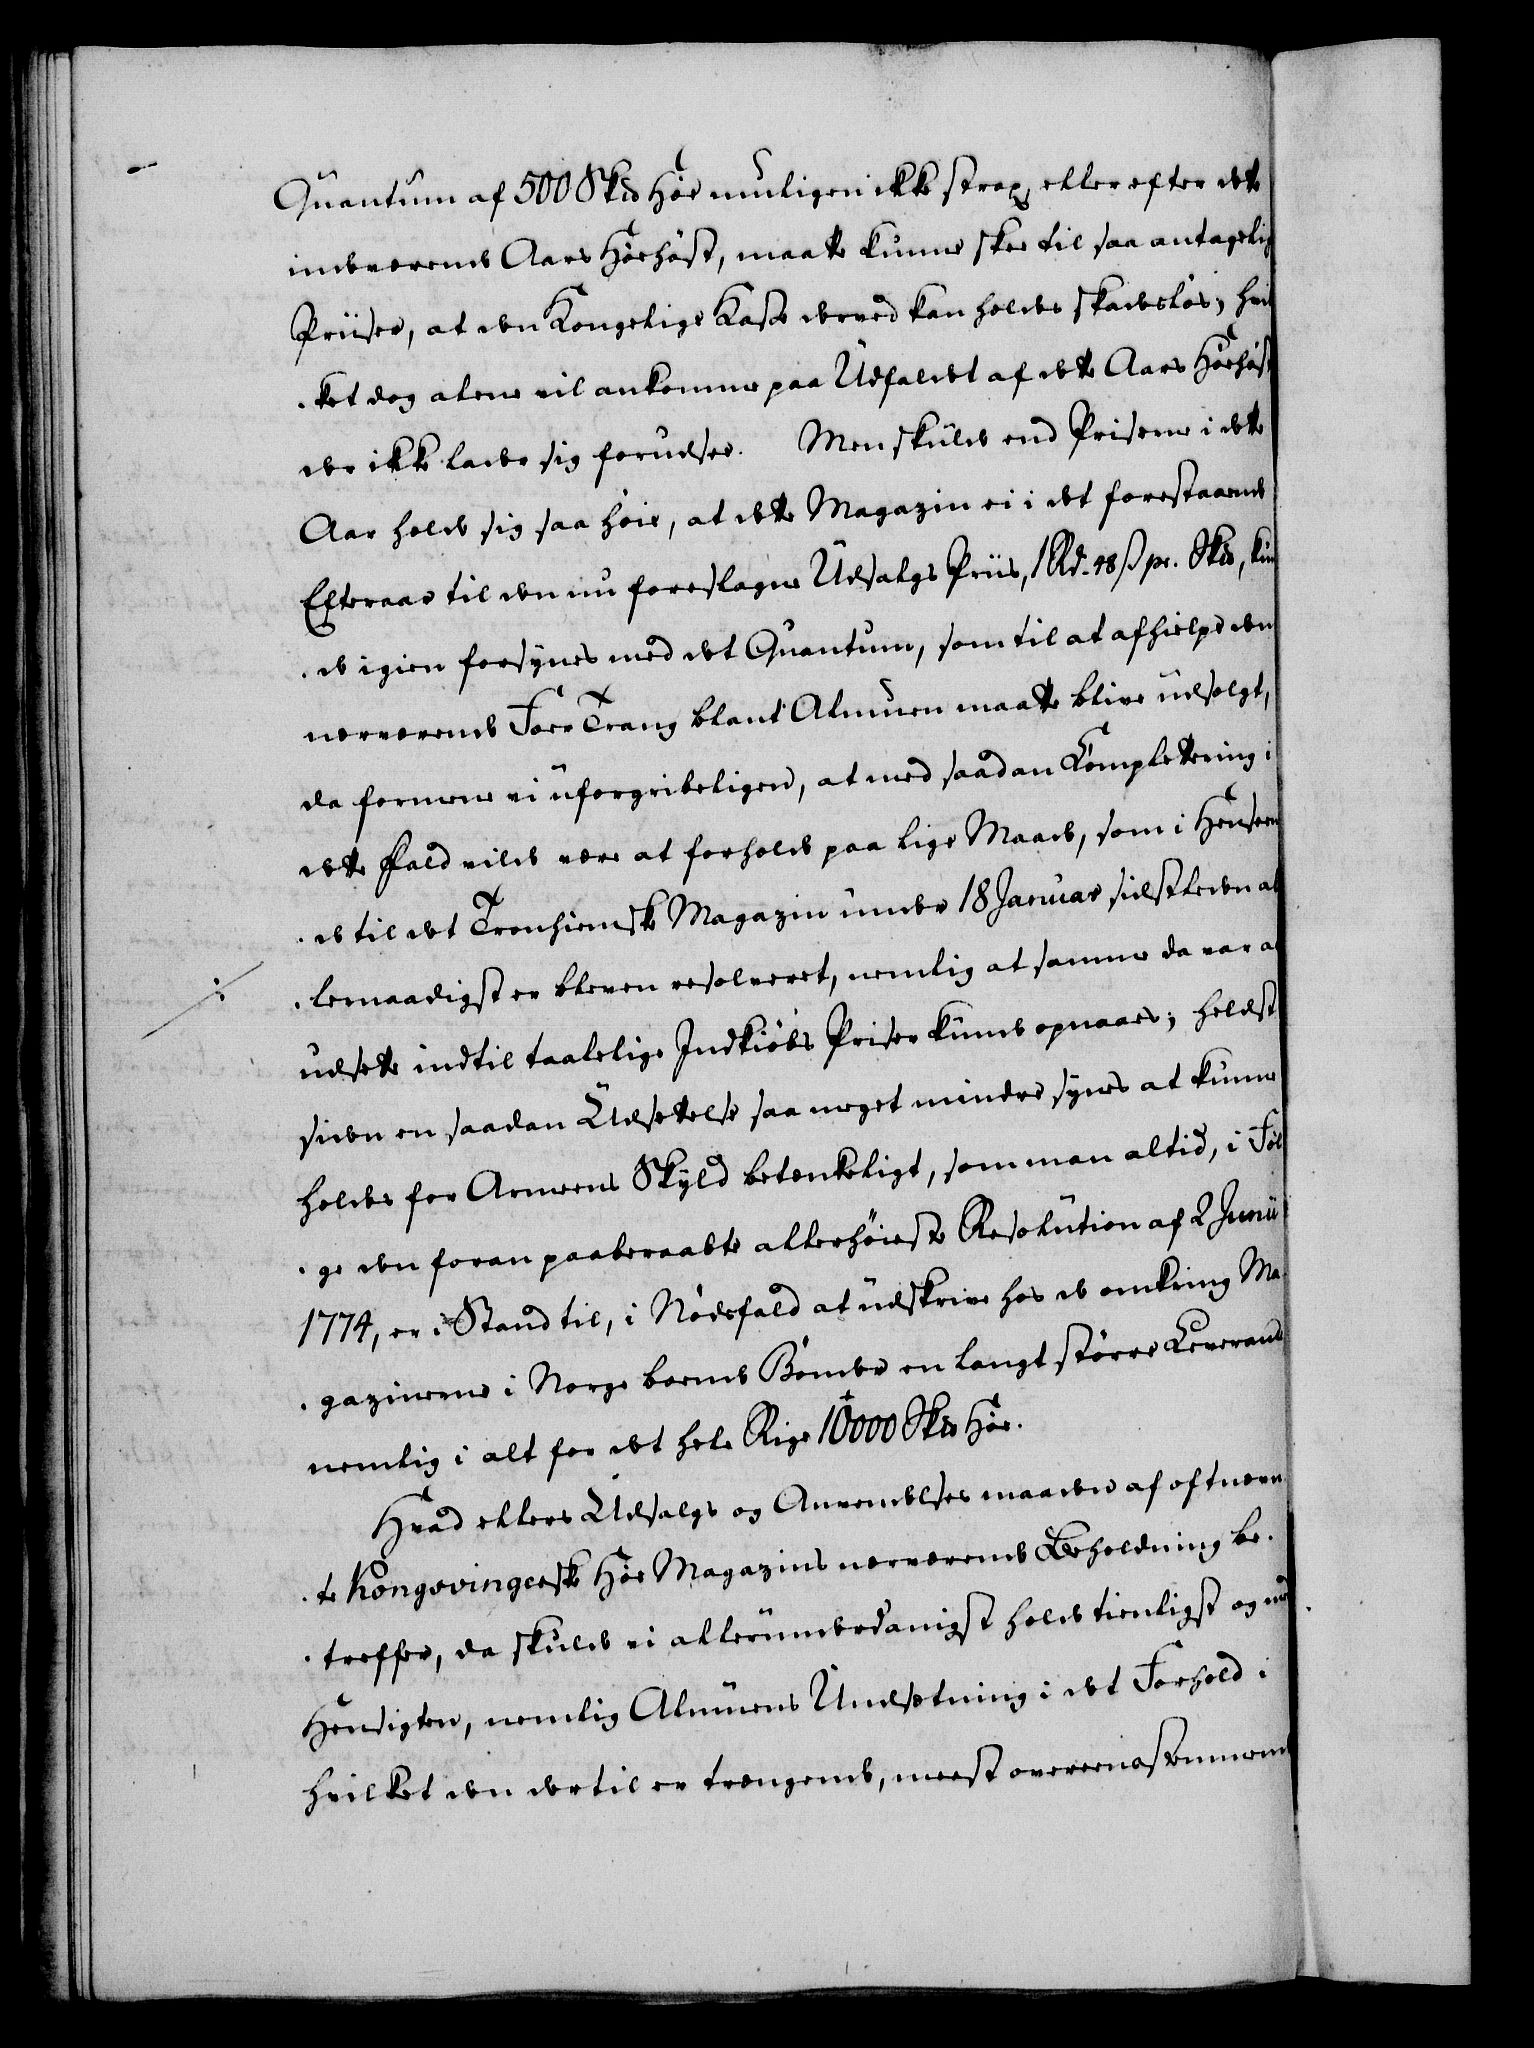 Quantum af 500 Skd Høe muligen ikke strax, eller efter dette
indværende Aars Høehøst, maatte kunne skee til saa antagelig
Priiser, at den Kongelige Kasse derved kan holdes skadesløs; hvil
ket dog alene vil ankomme paa Udfaldet af dette Aars Høehøst
der ikke lader sig forudsee. Men skulde end Prisene i dette
Aar holde sig saa høie, at dette Magazin ei i det forestaaende
Efteraar til den nu foreslagne Udsalgs Priis, 1 Rd. 48 ß pr. Skd, kun
de igien forsynes med det Quantum, som til at afhielpe den
nærværende Foer Trang blant Almuen maatte blive udsolgt,
da formene vi uforgribeligen, at med saadan Completering i
dette Fald vilde være at forholde paa lige Maade, som i Henseen
de til det Tronhiemske Magazin under 18 Januar sidstleden al
lernaadigst er bleven resolveret, nemlig at samme da var at
udsette indtil taalelige Indkiøbs Priser kunde opnaaes; heldst
siden en saadan Udsettelse saa meget mindre synes at kunne
holdes for Armeens Skyld betenkeligt, som man altid, i Føl
ge den foran paaberaabte allerhøieste Resolution af 2 Junii
1774, er i Stand til, i Nødsfald at udskrive hos de omkring Ma
gazinerne i Norge boende Bønder en langt større Leverand
nemlig i alt for det hele Rige 10000 Skd Høe.
Hvad ellers Udsalgs og Anvendelses maaden af oftnævn
te Kongsvingerske Høe Magazins nærværende Beholdning be
treffer, da skulde vi allerunderdanigst holde tienligst og med
Hensigten, nemlig Almuens Undsætning i det Forhold i
hvilket den dertil er trængende, meest overeensstemmende